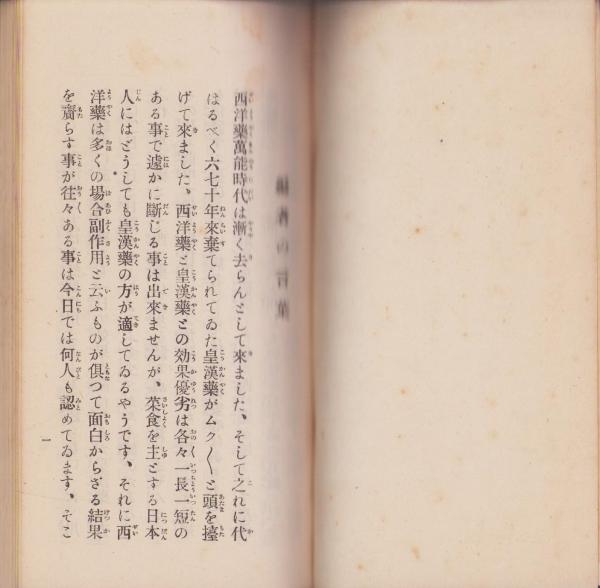 編者の言葉
西洋藥萬能時代は漸く去らんとして來ました、そして之れに代
はるべく六七十年來棄てられてゐた皇漢藥がムク〱と頭を擡
げて來ました、西洋藥と皇漢藥との効果優劣は各々一長一短の
ある事で遽かに斷じる事は出來ませんが、菜食を主とする日本
人にはどうしても皇漢藥の方が適してゐるやうです、それに西
洋藥は多くの場合副作用と云ふものが俱つて面白からざる結果
を齎らす事が往々ある事は今日では何人も認めてゐます、そこ
一